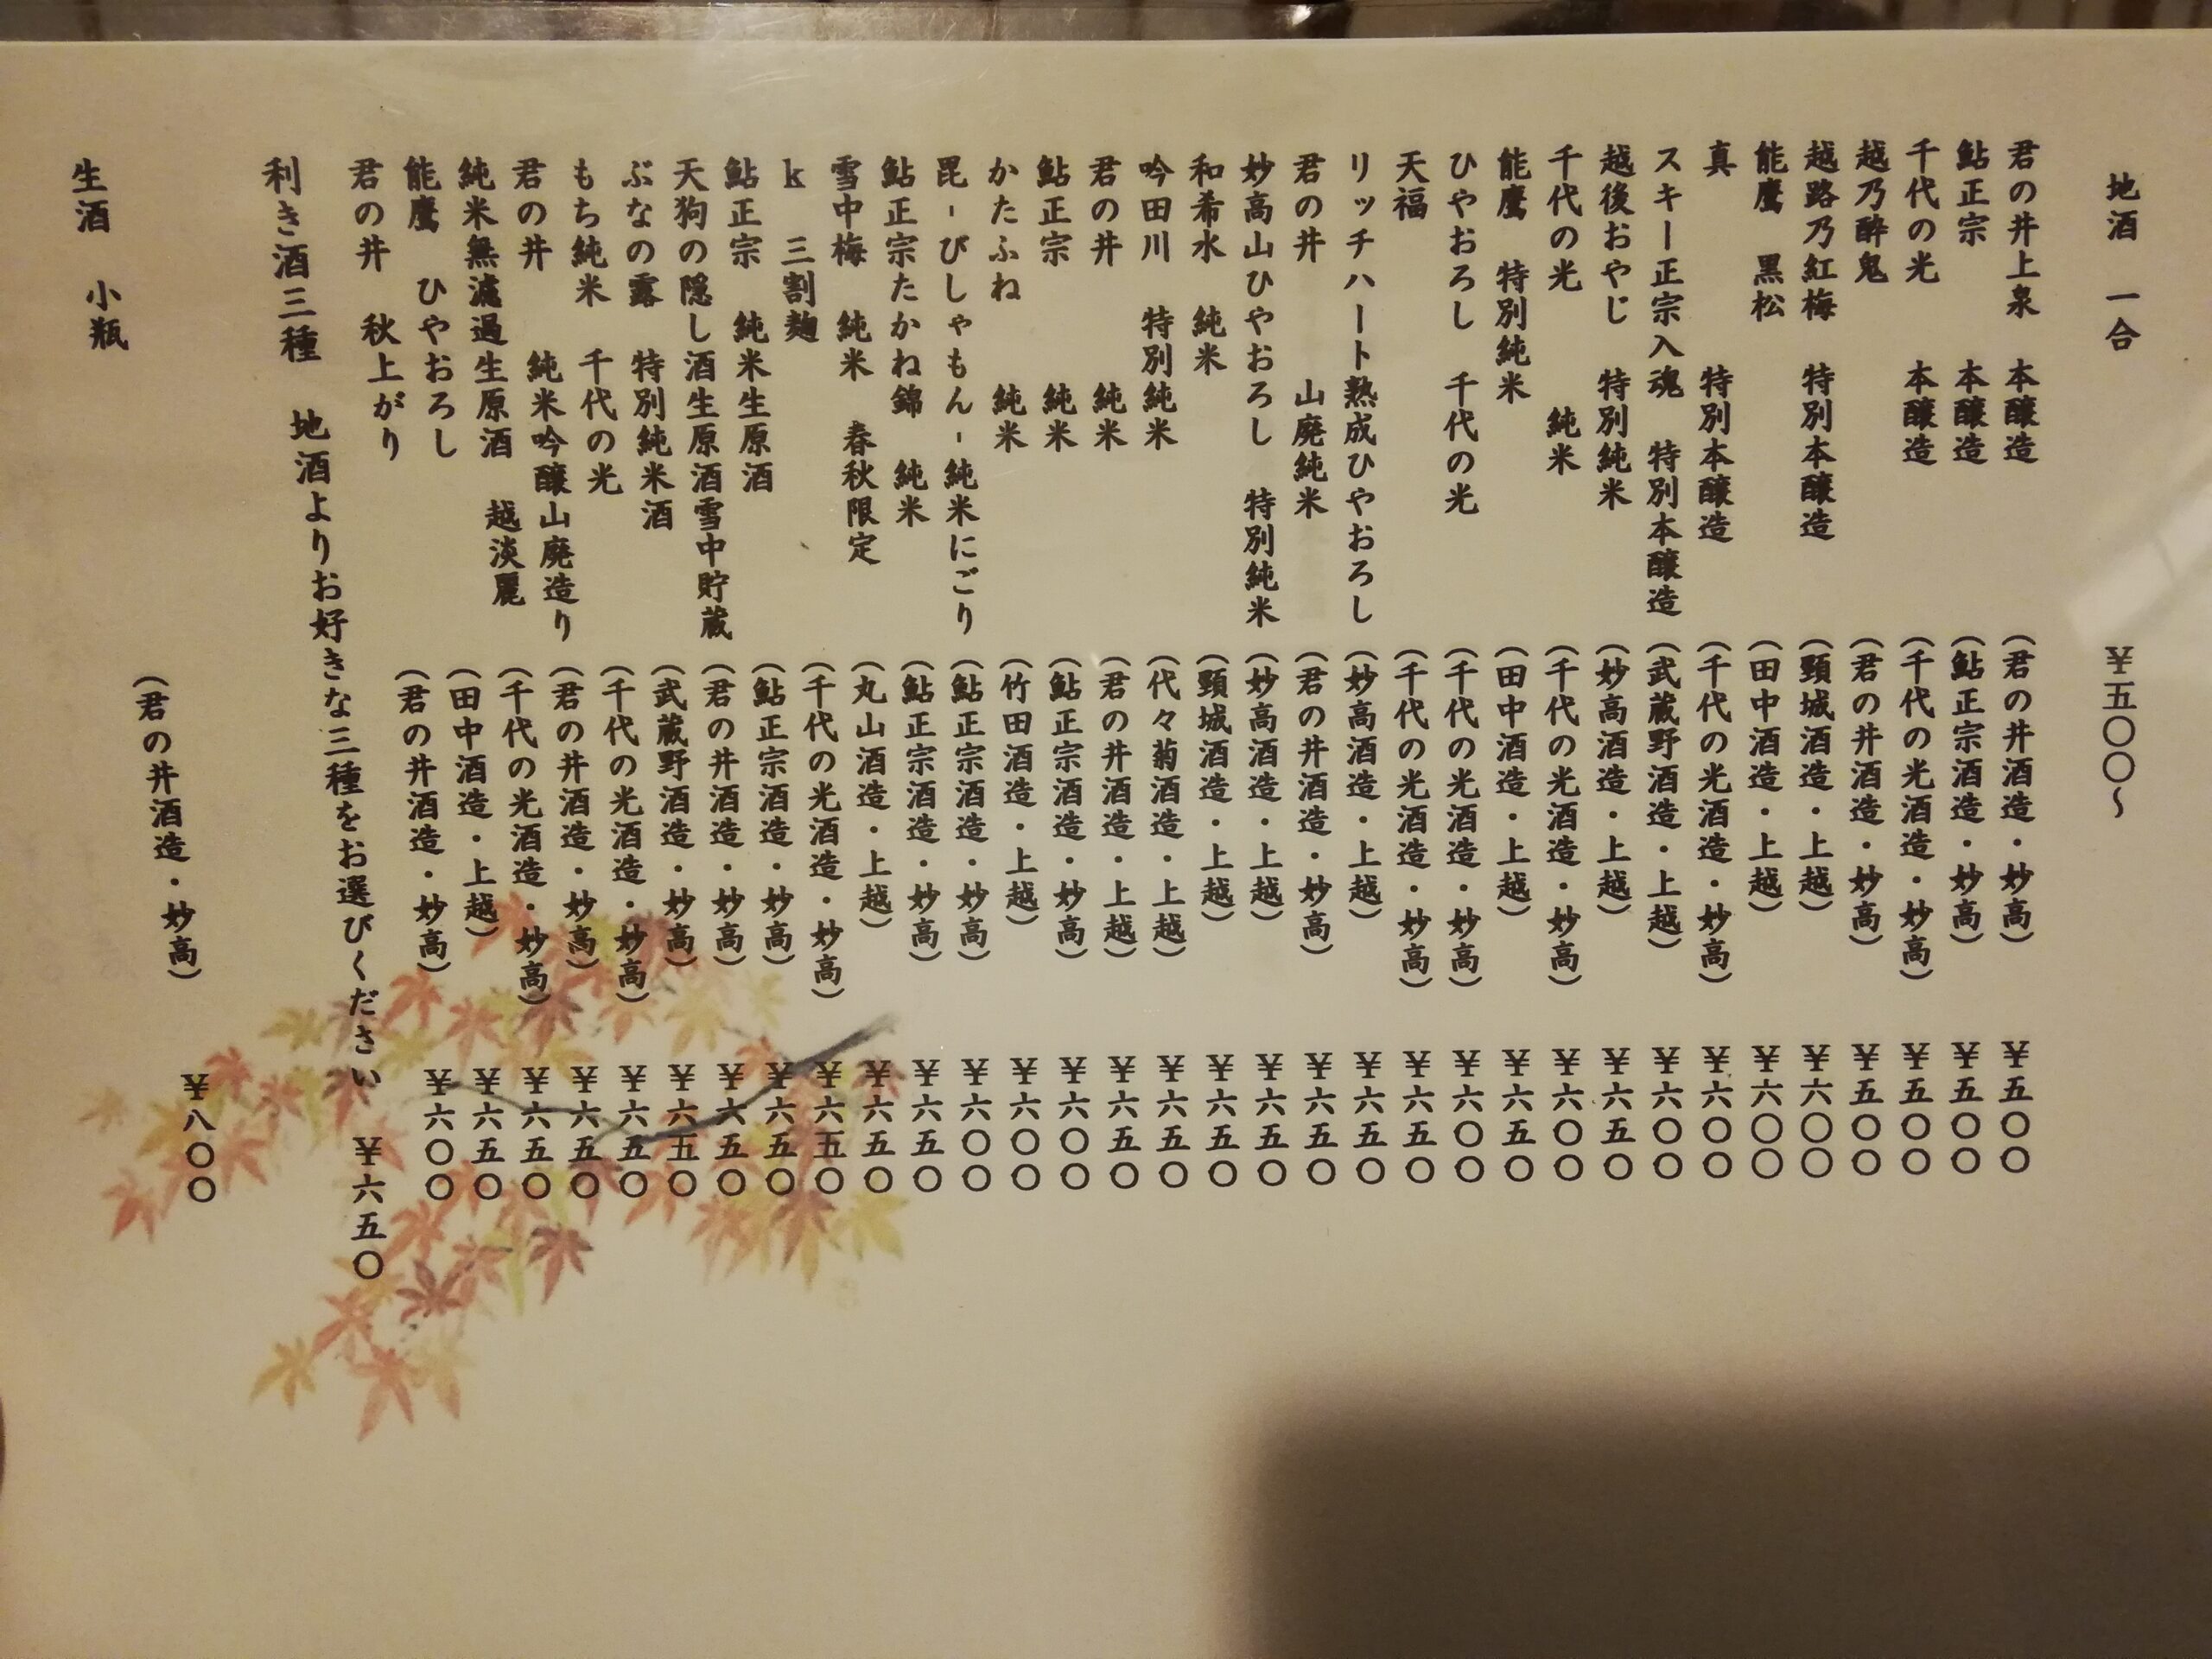 地酒 一合 ￥五〇〇～
君の井上泉 本醸造 (君の井酒造・妙高) ￥五〇〇
鮎正宗 本醸造 (鮎正宗酒造・妙高) ￥五〇〇
千代の光 本醸造 (千代の光酒造・妙高) ￥五〇〇
越乃酔鬼 (君の井酒造・妙高) ￥五〇〇
越路乃紅梅 特別本醸造 (頸城酒造・上越) ￥六〇〇
能鷹 黒松 (田中酒造・上越) ￥六〇〇
真 特別本醸造 (千代の光酒造・妙高) ￥六〇〇
スキー正宗入魂 特別本醸造 (武蔵野酒造・上越) ￥六〇〇
越後おやじ 特別純米 (妙高酒造・上越) ￥六五〇
千代の光 純米 (千代の光酒造・妙高) ￥六〇〇
能鷹 特別純米 (田中酒造・上越) ￥六五〇
ひやおろし 千代の光 (千代の光酒造・妙高) ￥六〇〇
天福 (千代の光酒造・妙高) ￥六五〇
リッチハート熟成ひやおろし (妙高酒造・上越) ￥六五〇
君の井 山廃純米 (君の井酒造・妙高) ￥六五〇
妙高山ひやおろし 特別純米 (妙高酒造・上越) ￥六五〇
和希水 純米 (頸城酒造・上越) ￥六五〇
吟田川 特別純米 (代々菊酒造・上越) ￥六五〇
君の井 純米 (君の井酒造・上越) ￥六五〇
鮎正宗 純米 (鮎正宗酒造・妙高) ￥六〇〇
かたふね 純米 (竹田酒造・上越) ￥六〇〇
毘-びしゃもん-純米にごり (鮎正宗酒造・妙高) ￥六〇〇
鮎正宗たかね錦 純米 (鮎正宗酒造・妙高) ￥六五〇
雪中梅 純米 春秋限定 (丸山酒造・上越) ￥六五〇
k 三割麹 (千代の光酒造・妙高) ￥六五〇
鮎正宗 純米生原酒 (鮎正宗酒造・妙高) ￥六五〇
天狗の隠し酒生原酒雪中貯蔵 (君の井酒造・妙高) ￥六五〇
ぶなの露 特別純米酒 (武蔵野酒造・妙高) ￥六五〇
もち純米 千代の光 (千代の光酒造・妙高) ￥六五〇
君の井 純米吟醸山廃造り (君の井酒造・妙高) ￥六五〇
純米無濾過生原酒 越淡麗 (千代の光酒造・妙高) ￥六五〇
能鷹 ひやおろし (田中酒造・上越) ￥六五〇
君の井 秋上がり (君の井酒造・妙高) ￥六〇〇
利き酒三種 地酒よりお好きな三種をお選びください ￥六五〇
生酒 小瓶 (君の井酒造・妙高) ￥八〇〇